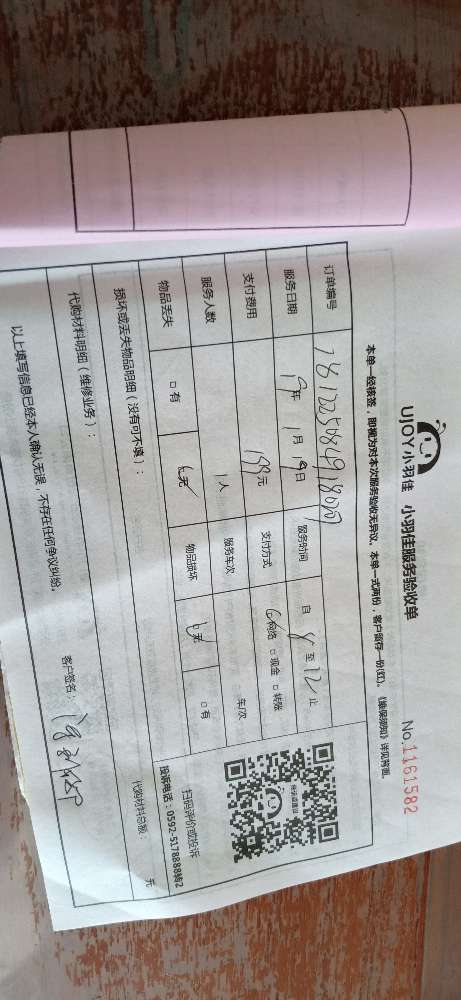 UJOY小羽佳 小羽佳服务验收单 No.1161582
本单一经核签，即视为对本次服务验收无异议。本单一式两份，客户留存一份(红)。《维保须知》详见背面。
订单编号
服务日期 19年 1月 19日 服务时间 自 8 至 12 止
支付费用 198元 支付方式 网络 □现金 □转账
服务人数 1人 服务车次 车/次
物品丢失 □有 无 物品损坏 无 □有
损坏或丢失物品明细（没有可不填）：
代购材料明细（维修业务）：
扫码评价或投诉
投诉电话：0592-5178888转2
代购材料总额： 元
以上填写信息已经本人确认无误，不存在任何争议纠纷。 客户签名：